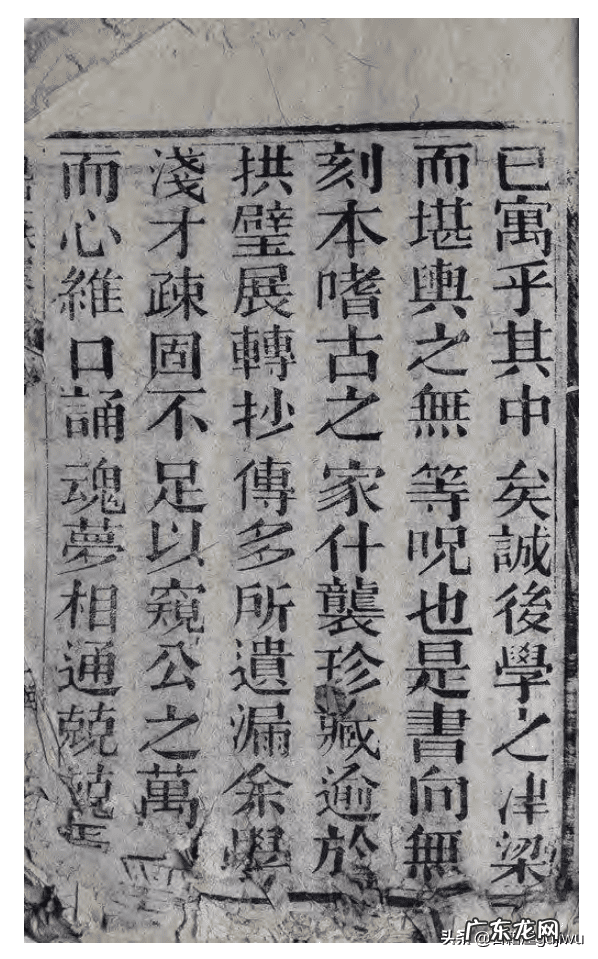 已寓乎其中矣誠後學之津梁
而堪輿之無等呪也是書向無
刻本嗜古之家什襲珍藏逾於
拱璧展轉抄傳多所遺漏余學
淺才疎固不足以窺公之萬
而心維口誦魂夢相通兢兢
广东龙网